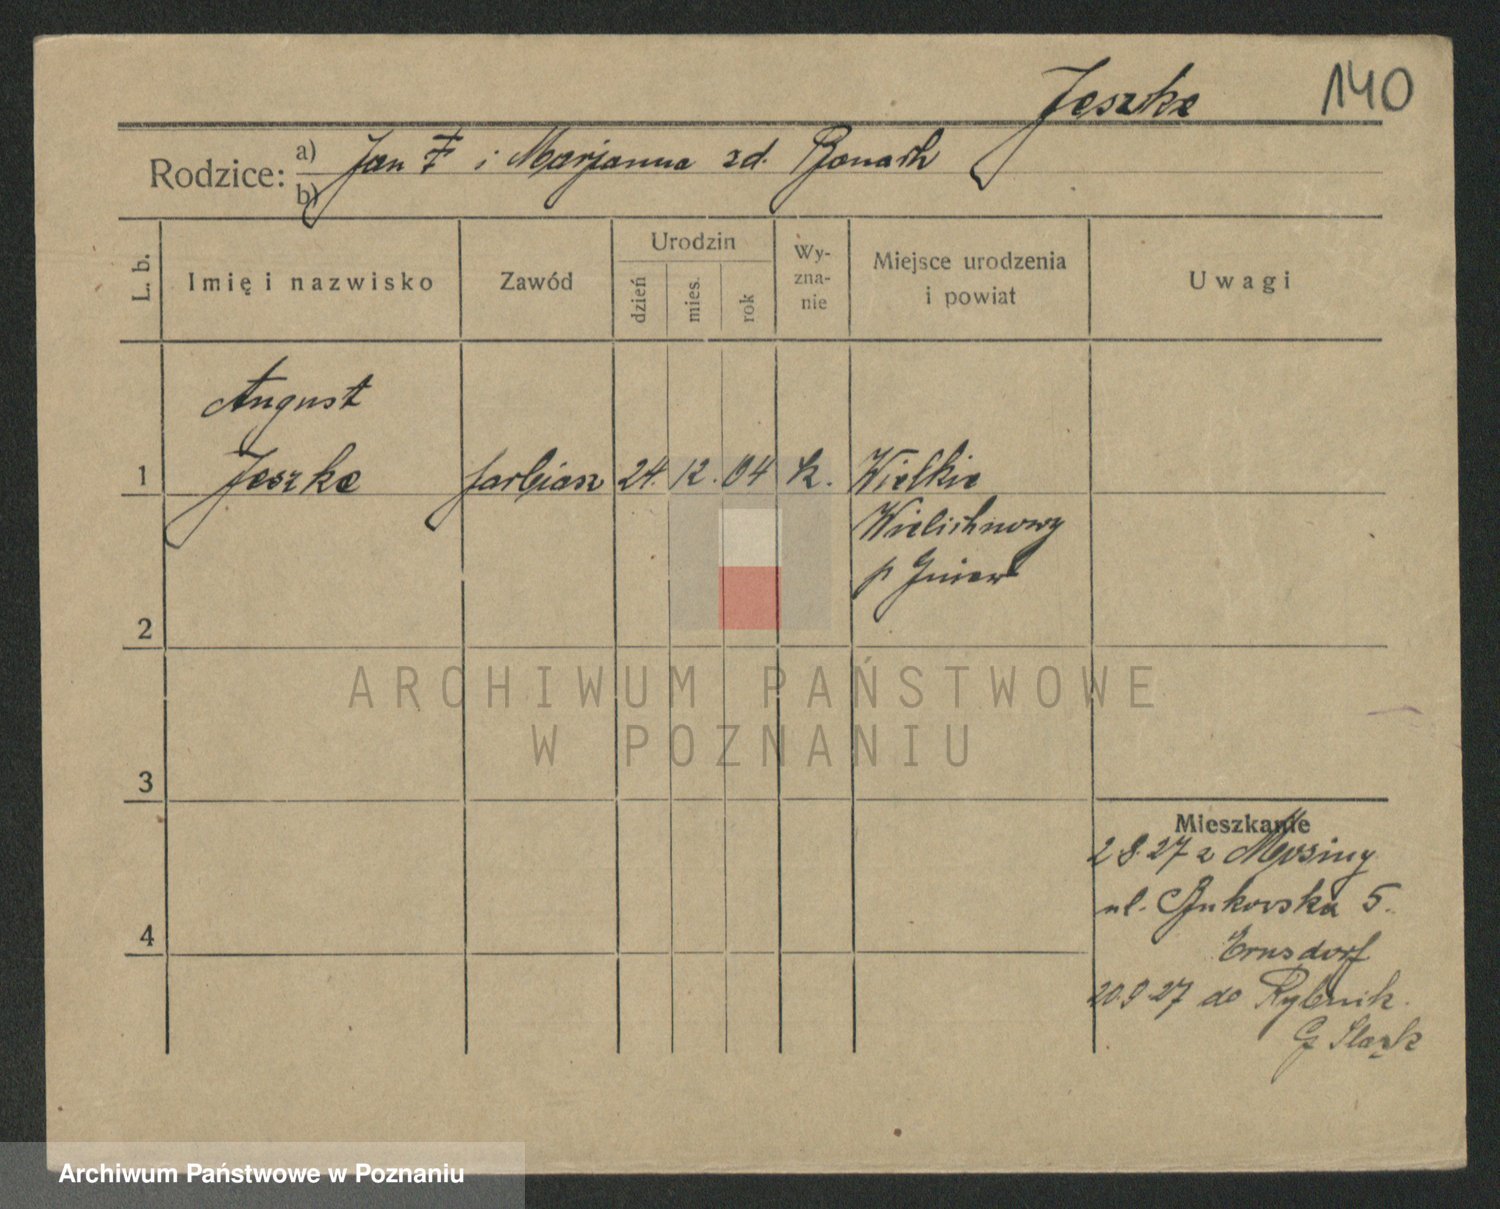 Jeszke
140
Rodzice:
a) Jan ‡ i Marjanna zd.
b)
L. b.
Imię i nazwisko
Zawód
Urodzin
dzień
mies.
rok
Wy-
zna-
nie
Miejsce urodzenia
i powiat
Uwagi
August
1 Jeszke farbiarz 24. 12. 04 k. Wielkie
Wielichnowy
p Gniew
2
ARCHIWUM PAŃSTWOWE
W POZNANIU
3
Mieszkanie
2 8. 27 z Mosiny
ul. Bukowska 5.
Ernsdorf
4
20.9.27 do Rybnik.
G Śląsk
Archiwum Państwowe w Poznaniu